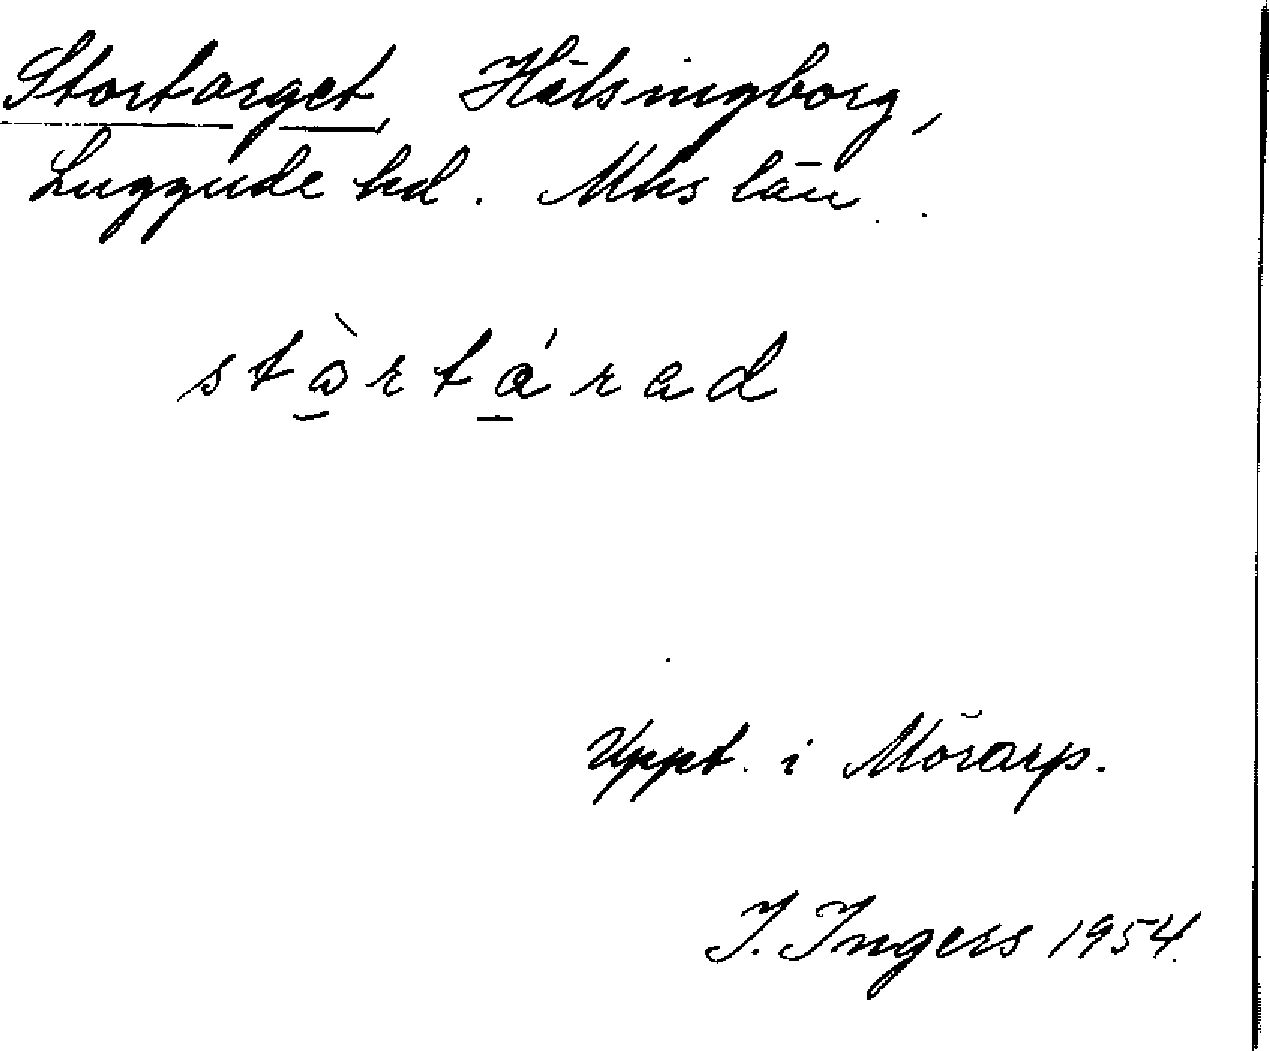 Stortorget, Hälsingborg,
Luggude hd. Mhs län
stòrtárad
Uppt. i Mörarp.
I. Ingers 1954.